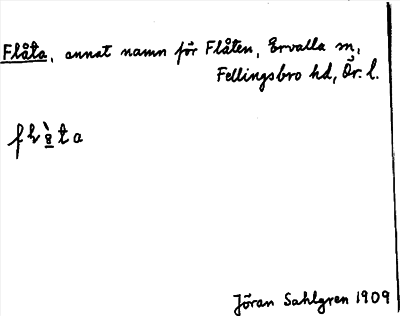 Flåta, annat namn för Flåten, Ervalla sn,
Fellingsbro hd, Ör. l.
Jöran Sahlgren 1909